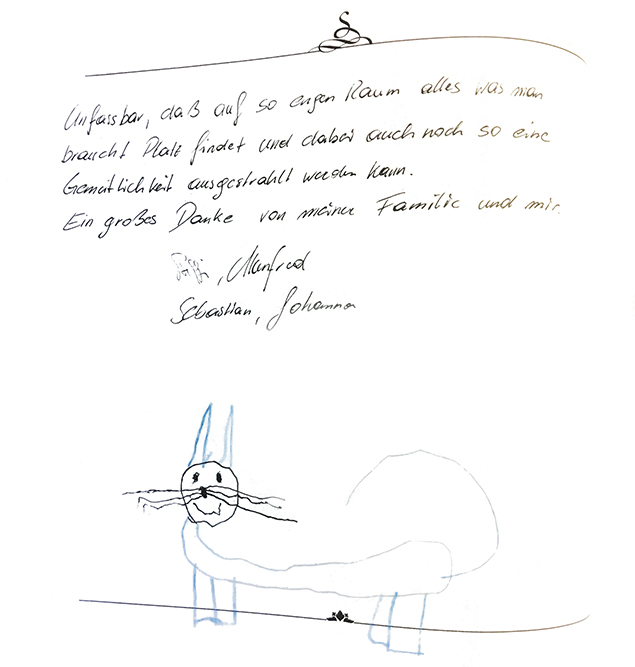 Unfassbar, daß auf so engen Raum alles was man
braucht Platz findet und dabei auch noch so eine
Gemütlichkeit ausgestrahlt werden kann.
Ein großes Danke von meiner Familie und mir.
, Manfred
Sebastian, Johanna